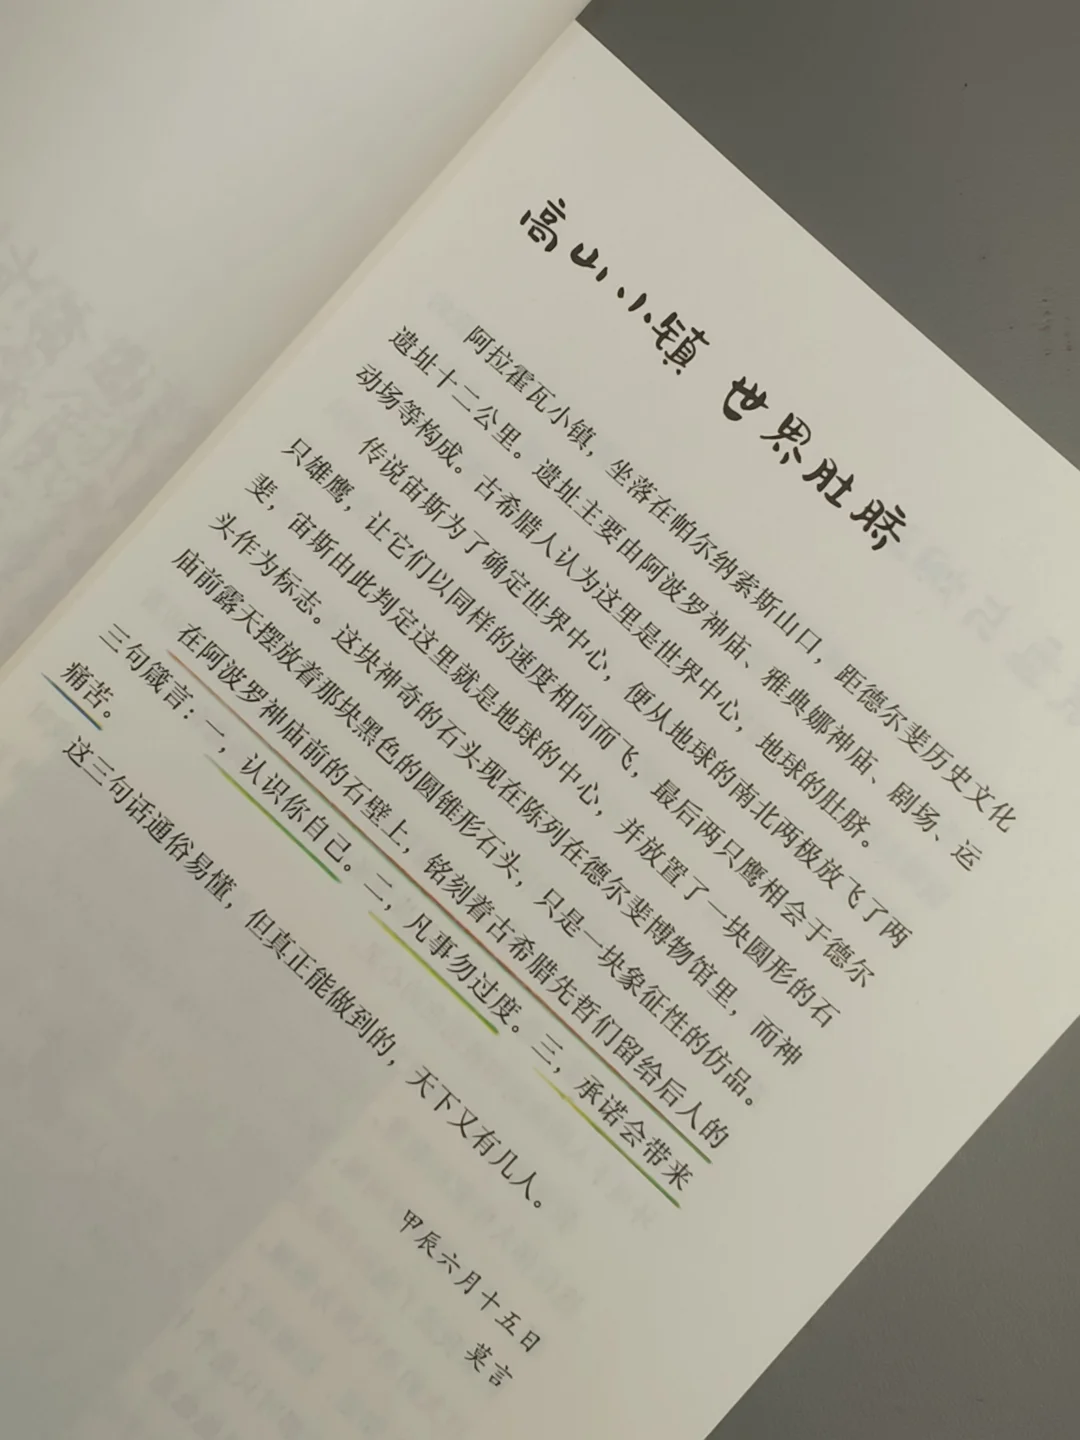 高山小镇 世界肚脐
阿拉霍瓦小镇，坐落在帕尔纳索斯山口，距德尔斐历史文化
遗址十二公里。遗址主要由阿波罗神庙、雅典娜神庙、剧场、运
动场等构成。古希腊人认为这里是世界中心，地球的肚脐。
传说宙斯为了确定世界中心，便从地球的南北两极放飞了两
只雄鹰，让它们以同样的速度相向而飞，最后两只鹰相会于德尔
斐，宙斯由此判定这里就是地球的中心，并放置了一块圆形的石
头作为标志。这块神奇的石头现在陈列在德尔斐博物馆里，而神
庙前露天摆放着那块黑色的圆锥形石头，只是一块象征性的仿品。
在阿波罗神庙前的石壁上，铭刻着古希腊先哲们留给后人的
三句箴言：一，认识你自己。二，凡事勿过度。三，承诺会带来
痛苦。
这三句话通俗易懂，但真正能做到的，天下又有几人。
甲辰六月十五日
莫言